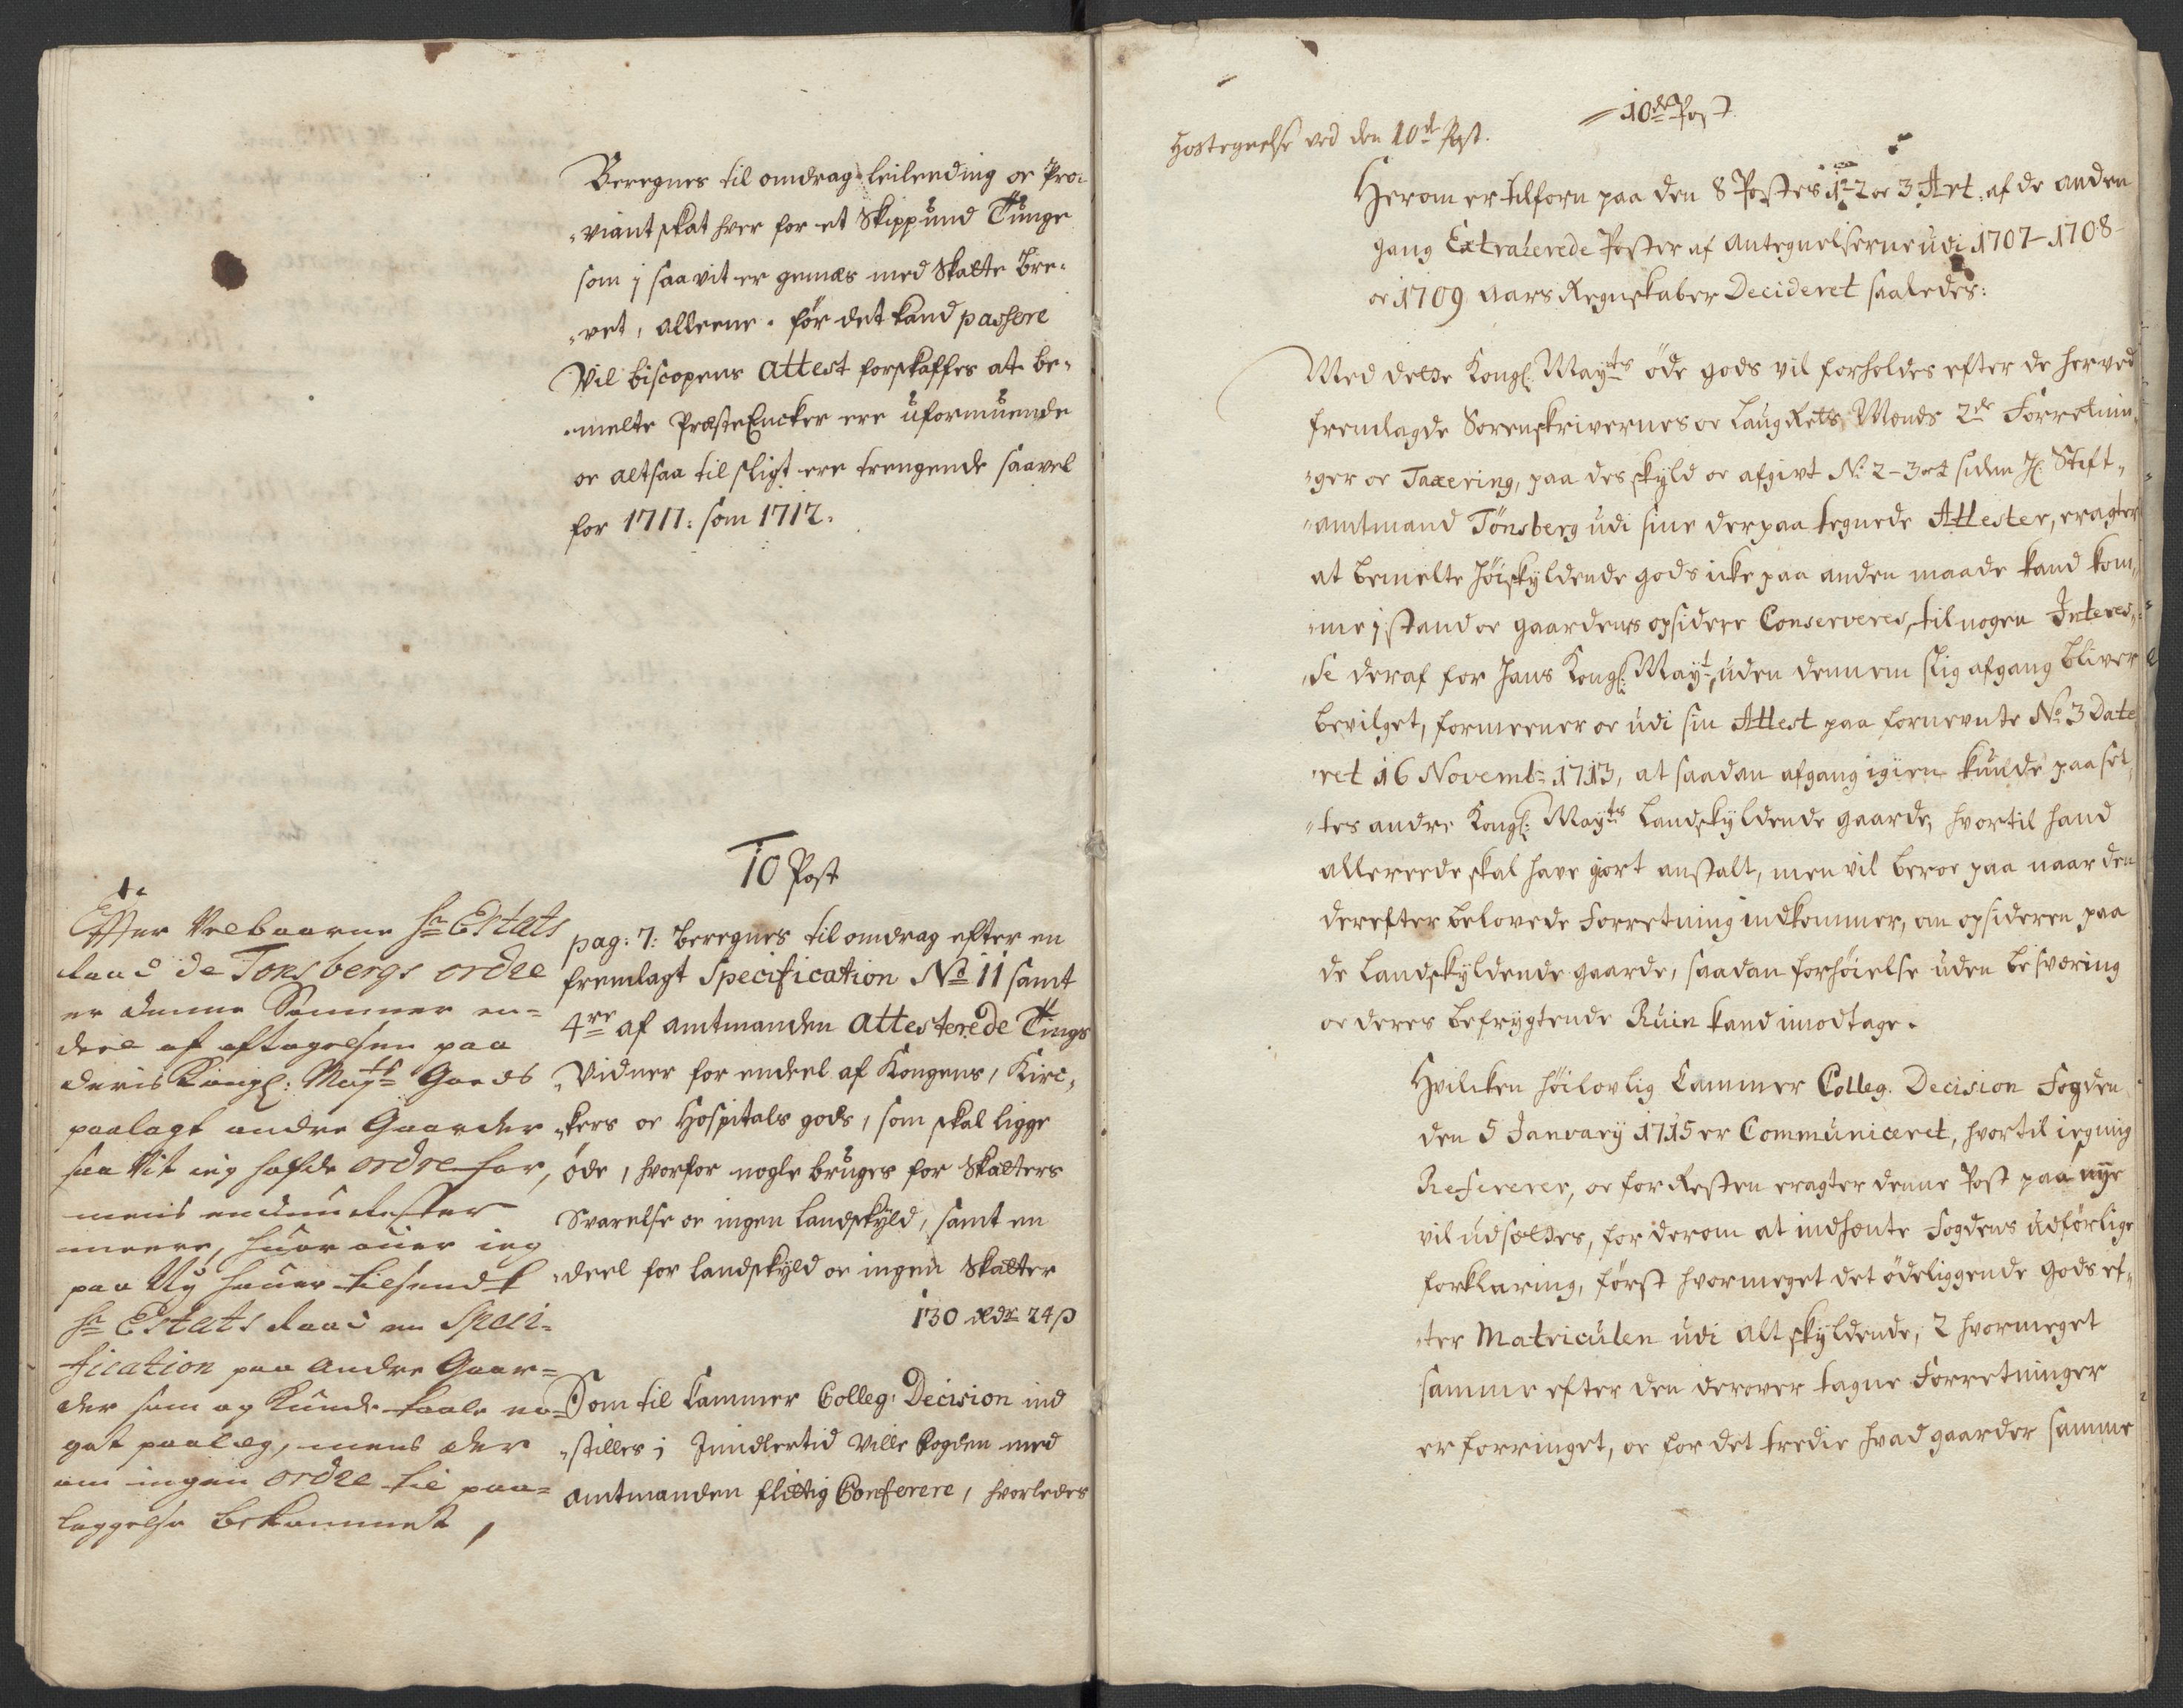 Beregnes til omdrag leilending oc Pro-
viant skat hver for et Skippund Tunge
som j saavit er gemæs med Skatte Bre-
vet, alleene. før det kand passere
Vil biscopens attest forskaffes at be-
melte Præste Encker ere uformuende
oc altsaa til sligt ere trengende saavel
for 1711: som 1712.
10 Post
pag: 7: Beregnes til omdrag efter en
fremlagt Specification No 11 samt
4re af amtmanden attesterede Tings
Vidner for endeel af Kongens, Kirc-
kers oc Hospitals gods, som skal ligge
øde, hvorfor nogle bruges for Skatters
Svarelse oc ingen landskyld, samt en
deel for landskyld oc ingen Skatter
130 rdr 24 β
Som til Cammer Colleg: Decision ind
stilles j Jmidlertid Ville Fogden med
amtmanden flittig Conferere, hvorledes
Effter Velbaarne Hr Estats
Raad de Tonsbergs ordre
er denne Summer en-
deel af aftagelsen paa
deris Kongl: Mayts Goeds
paalagt andre Gaarder
saa vit ieg hafde ordre for,
mens endnu rester
meere, huor ouer ieg
paa Ny hauer tilsendt
Hr Estats Raad en Speci-
fication paa andre Gaar-
der som og kunde taale no-
get paalæg, mens der
om ingen ordre til paa-
leggelse bekommet,
10de Post
Hostegnelse ved den 10de Post.
Herom er tilforn paa den 8 Postes 1te 2 oc 3 Art. af de anden
gang Extraherede Poster af Antegnelserne udi 1707-1708-
oc 1709 Aars Regnskaber Decideret saaledes:
Med dette Kongl: Mayts øde gods vil forholdes efter de herved
fremlagde Sorenskrivernes oc Laug Rets Mænds 2de Forretnin-
ger oc Taxering, paa des skyld oc afgivt No 2-3 et siden H: Stift-
amtmand Tönsberg udi sine derpaa tegnede Attester, eragter
at bemelte høiskyldende gods icke paa anden maade kand kom-
me j stand oc gaardens opsidere Conserveres, til nogen Interes-
se deraf for Hans Kongl: Mayt, uden dennem slig afgang bliver
bevilget, formeener oc udi sin Attest paa fornevnte No 3 Date
ret 16 Novembr 1713, at saadan afgang igien kunde paaset-
tes andre Kongl: Mayts Landskyldende gaarde, hvortil hand
allereede skal have giort anstalt, men vil beroe paa naar den
derefter belovede Forretning indkommer, om opsideren paa
de Landskyldende gaarde, saadan forhøielse uden besværing
oc deres befrygtende Ruin kand imodtage.
Hvilcken høilovlig Cammer Colleg. Decision Fogden
den 5 Janvary 1715 er Communiceret, hvortil ieg mig
Refererer, oc for Resten eragter denne Post paa nye
vil udsættes, for derom at indhente Fogdens udførlige
forklaring, først hvormeget det ødeliggende gods ef-
ter Matriculen udi alt skyldende, 2 hvormeget
samme efter den derover tagne Forretninger
er forringet, oc for det tredie hvad gaarder samme